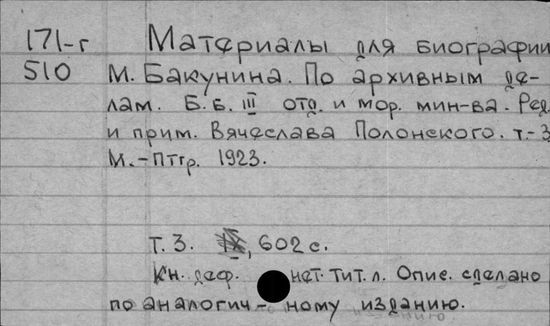 171-г Материалы для биографии
510 М. Бакунина. По архивным де-
лам. Б.б. III отд. и мор. мин-ва. Ред.
и прим. Вячеслава Полонского. т.-3
М.-Птгр. 1923.
т. 3. IX, 602 с.
Кн. деф. нет тит. л. Опис. сделано
по аналогич- ному изданию.